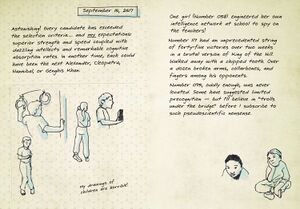 September 16, 2617
Astonishing! Every candidate has exceeded
the selection criteria... and my expectations:
superior strength and speed coupled with
dazzling intellects and remarkable cognitive
absorption rates. In another time, each could
have been the next Alexander, Cleopatra,
Hannibal, or Genghis Khan.
my drawings of
children are horrible!
One girl (Number 058) engineered her own
intelligence network at school to spy on
the teachers!
Number 117 had an unprecedented string
of forty-five victories over two weeks
in a brutal version of King of the Hill.
Walked away with a chipped tooth. Over
a dozen broken arms, collarbones, and
fingers among his opponents.
Number 034, oddly enough, was never
located. Some have suggested limited
precognition — but I'll believe in "trolls
under the bridge" before I subscribe to
such pseudoscientific nonsense.